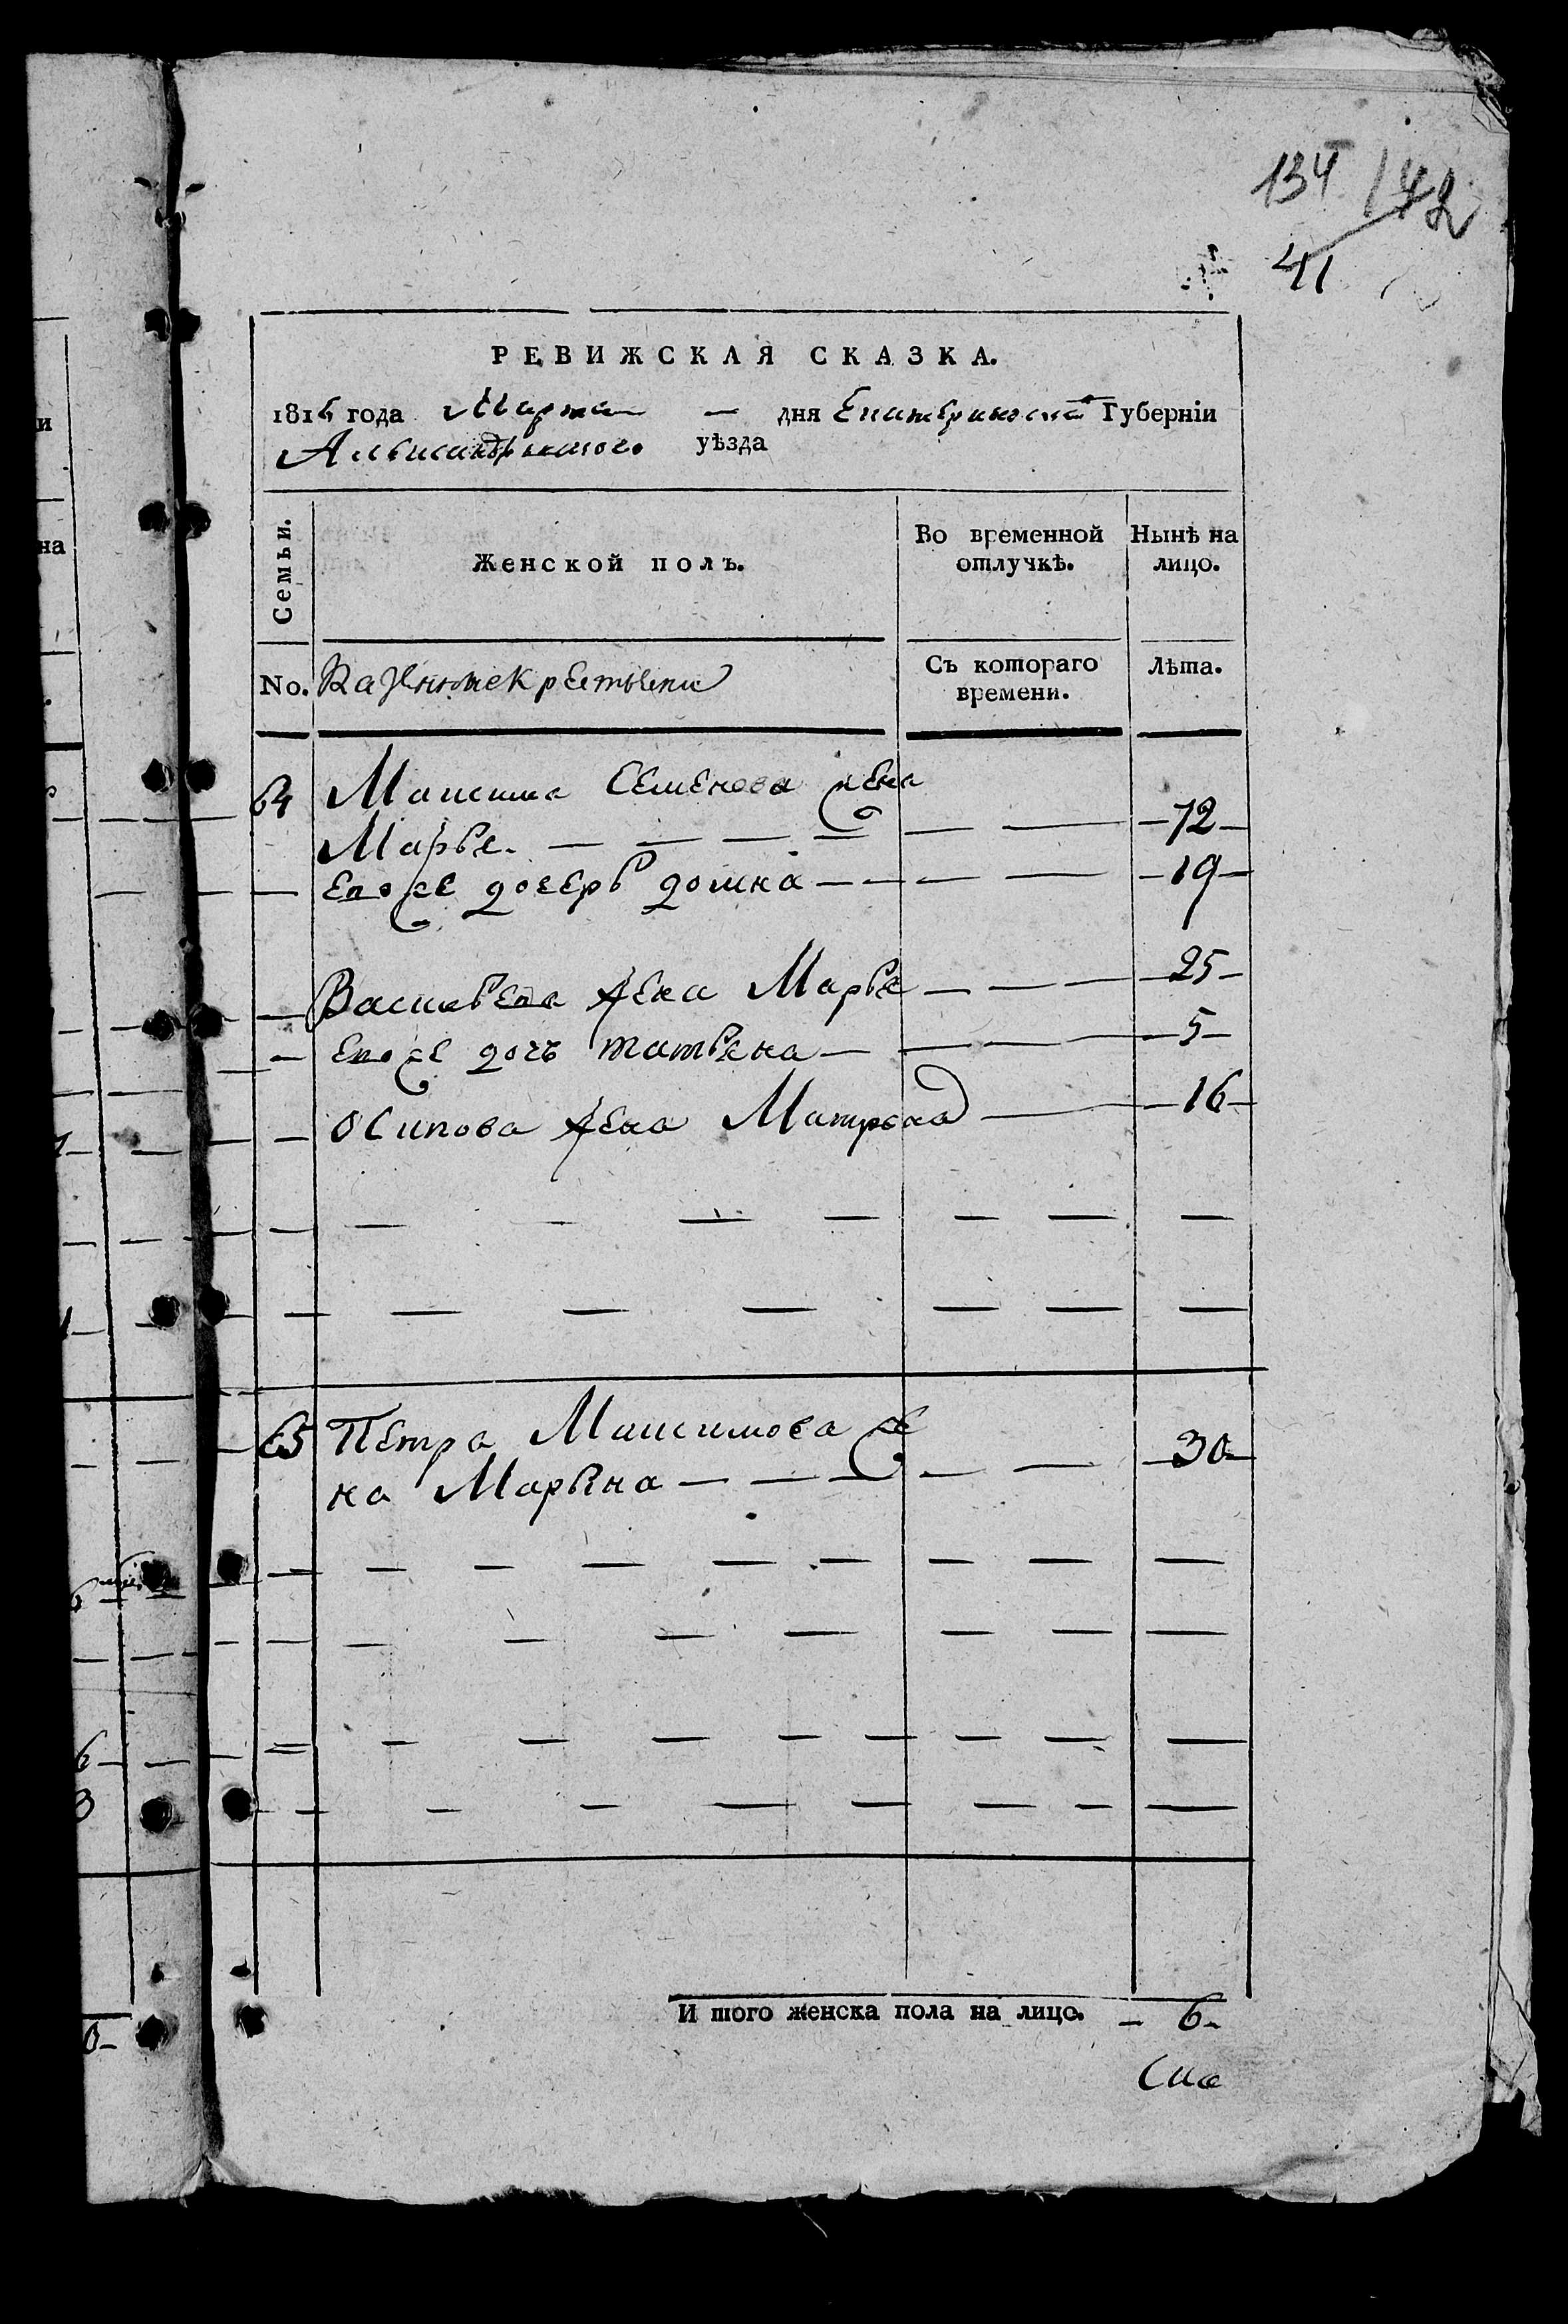 134 142
41
РЕВИЖСКАЯ СКАЗКА.
1816 года Марта — дня Екатеринослав Губерніи
Александрыского уѣзда
Семьи.
Женской полъ.
Во временной отлучкѣ.
Нынѣ на лицо.
No.
Съ котораго времени.
Лѣта.
64 Максима Семенова жена
Марья — — — — — — —72—
Его же дочерь домна — — — — —19—
Васильева жена Марья — — — —25—
Его же дочь татьяна — — — — —5—
Осипова жена Матрона — — —16—
65 Петра Максимова же
на Марьяна — — — — — —30—
И того женска пола на лицо. — 6—
и
на